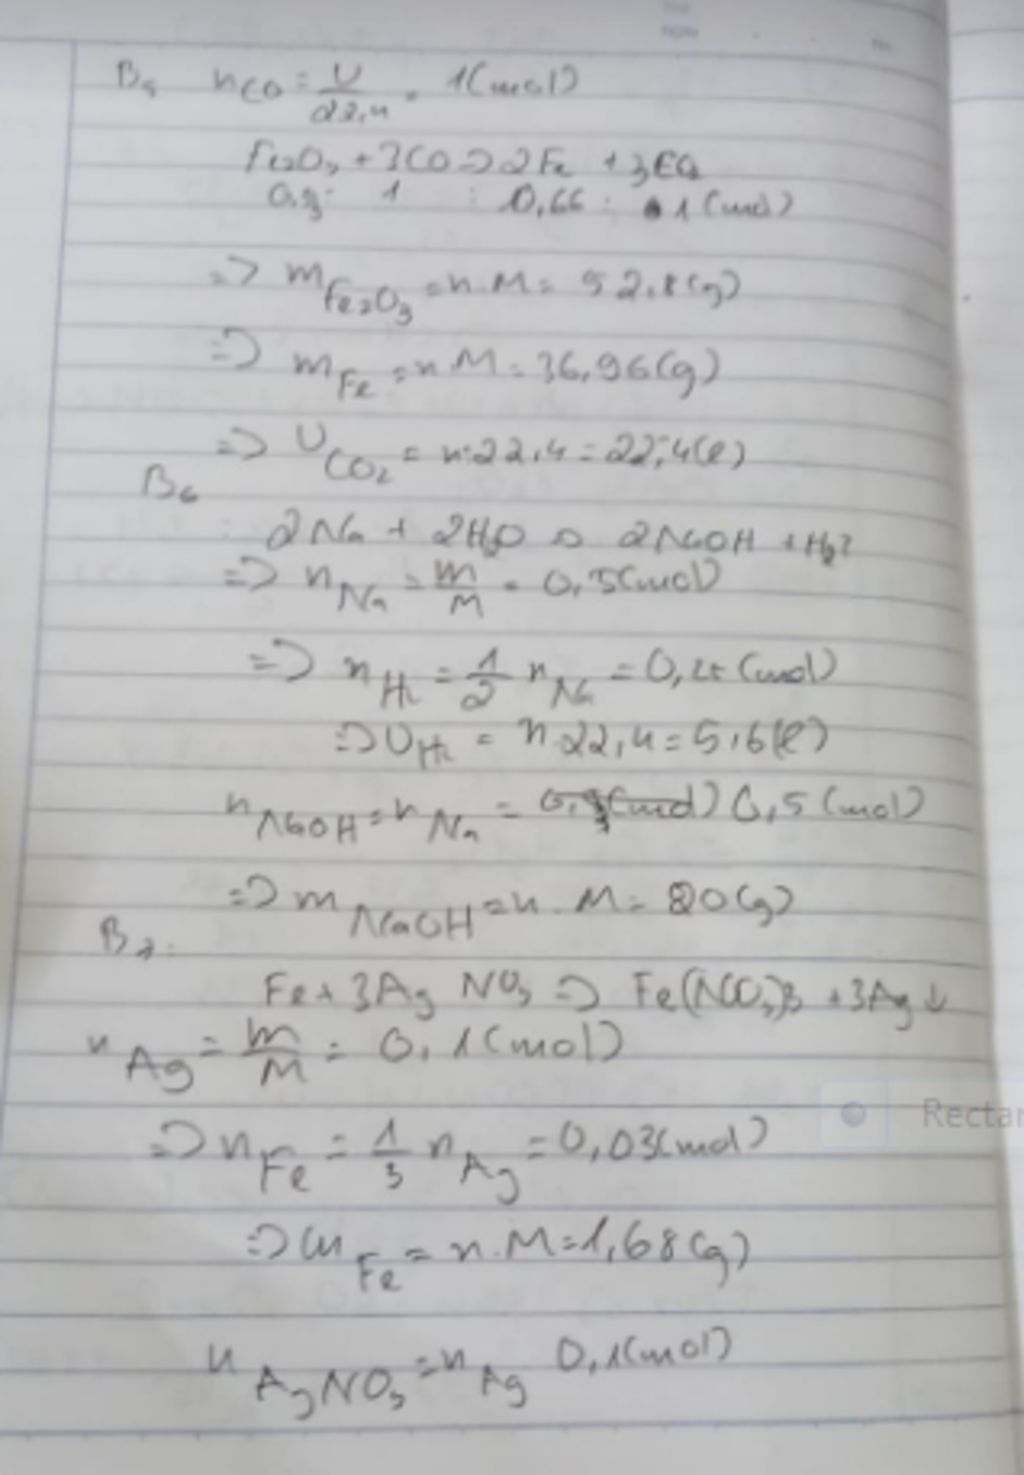 B5 nCO = V/22,4 = 1(mol)
Fe2O3 + 3CO => 2Fe + 3CO2
0,3 : 1 : 0,66 : 1 (mol)
=> mFe2O3 = n.M = 52,8(g)
=> mFe = n.M = 36,96(g)
=> VCO2 = n.22,4 = 22,4(l)
B6
2Na + 2H2O => 2NaOH + H2↑
=> nNa = m/M = 0,5(mol)
=> nH2 = 1/2 nNa = 0,25 (mol)
=> VH2 = n.22,4 = 5,6(l)
nNaOH = nNa = 0,5 (mol)
=> mNaOH = n.M = 20(g)
B7:
Fe + 3AgNO3 => Fe(NO3)3 + 3Ag↓
nAg = m/M = 0,1(mol)
=> nFe = 1/3 nAg = 0,03(mol)
=> mFe = n.M = 1,68(g)
nAgNO3 = nAg 0,1(mol)